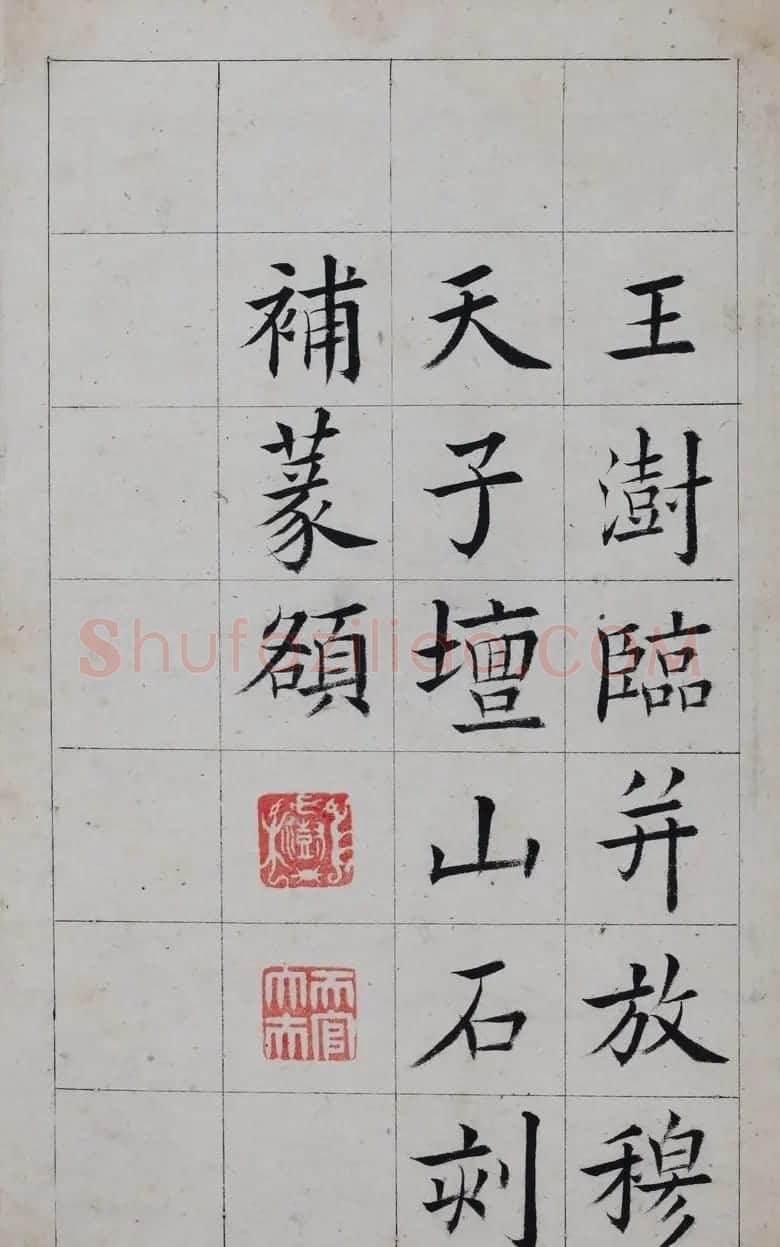 王澍臨并放穆
天子壇山石刻
補篆額
Shufaziliao.COM